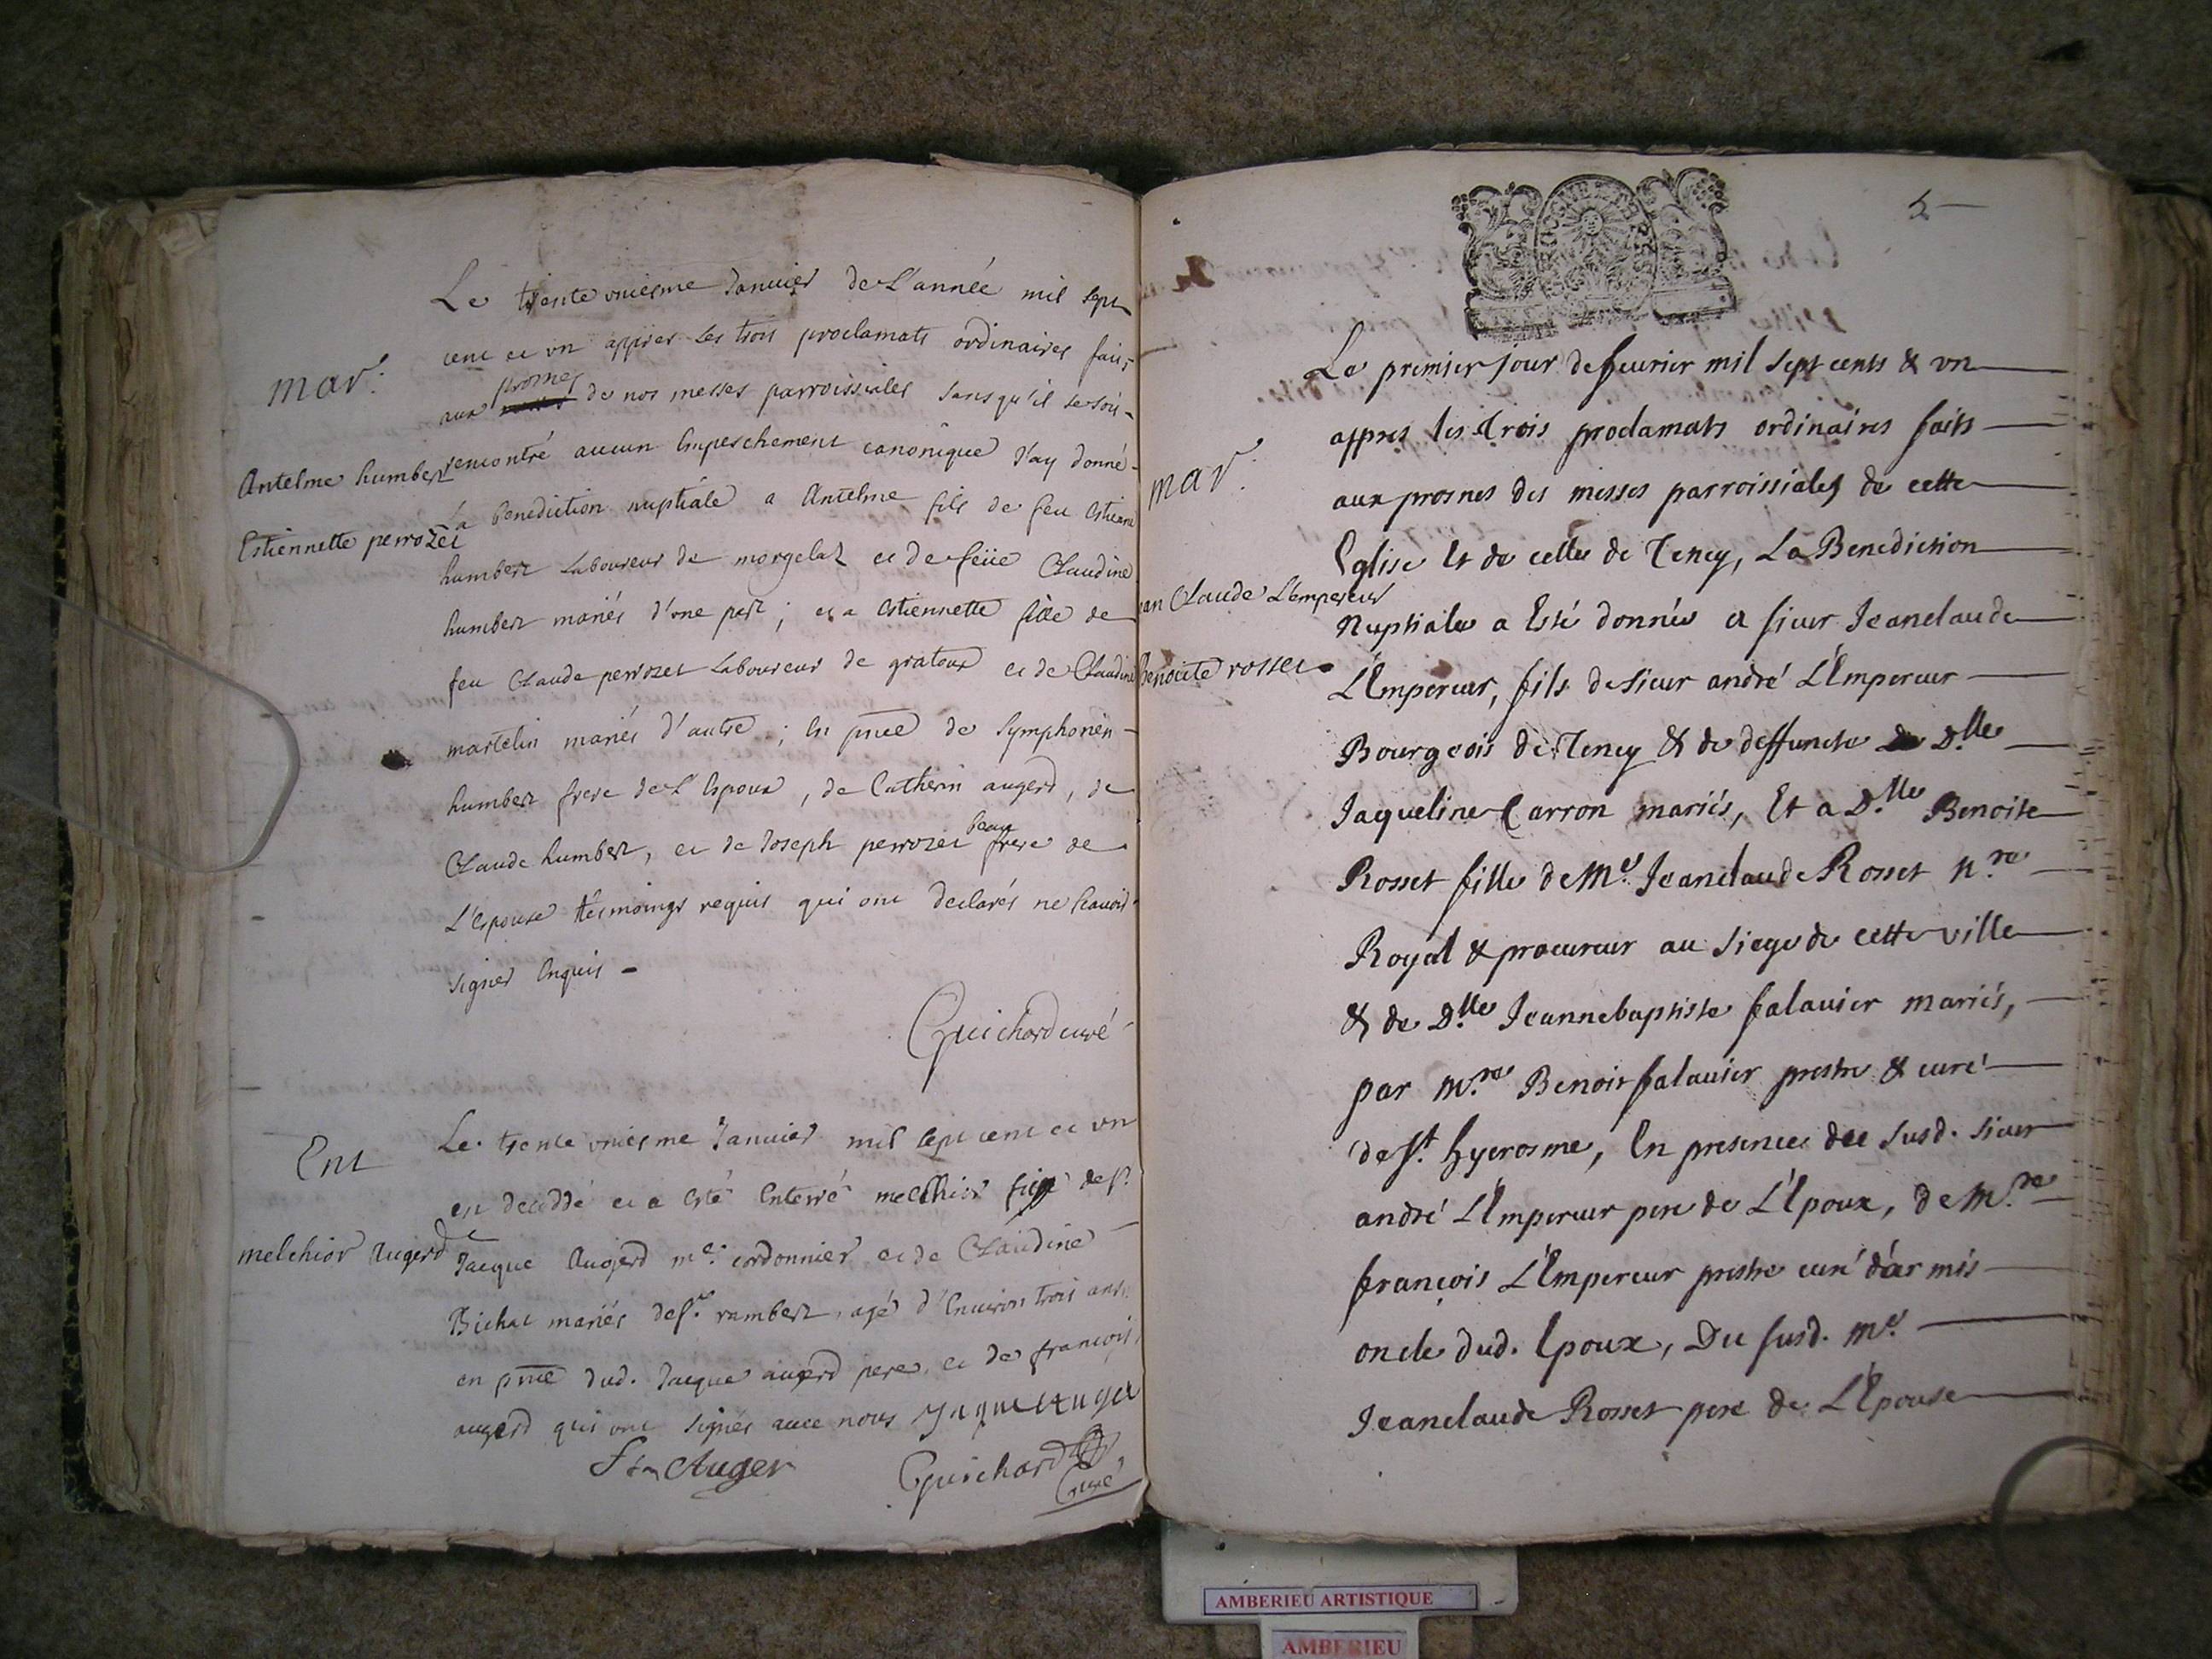 Le trente uniesme Januier de L'année mil sept
cent et un appres les trois proclamats ordinaires faits
mar.
prosnes
aux de nos messes parroissiales sans qu'il se soit
Antelme humbert
rencontré aucun Empeschement canonique J'ay donné
Estiennette perrozet
La Benediction nuptiale a Antelme fils de feu Estienne
humbert Laboureur de morgelaz et de feüe Claudine
humbert mariés d'une part ; et a Estiennette fille de
feu Claude perrozet Laboureur de gratoux et de Claudine
martelin mariés d'autre ; En pnce de Symphorien
humbert frere de L'Espoux, de Catherin augerd, de
beau
Claude humbert, et de Joseph perrozet frere de
L'Espouse tesmoings requis qui ont declarés ne scauoir
signer Enquis
Guichard curé
Ent
Le trente uniesme Januier mil sept cent et un
est decedé et a esté Enterré melchior fils de sr
melchior Augerd
Jacque Augerd me cordonnier et de Claudine
Bichat mariés de St rambert, agé d'Enuiron trois ans
en pnce dud. Jacque augerd pere, et de françois
augerd qui ont signés auec nous Jaque Auger
f Auger
Guichard
Curé
5
Le premier jour de feurier mil sept cents & un
appres les trois proclamats ordinaires faits
mar.
aux prosnes des messes parroissiales de cette
Eglise Et de celle de Teney, La Benediction
Jean Claude L'Empereur
Nuptiale a Esté donnée a sieur Jeanclaude
Benoite rosset
L'Empereur, fils de sieur andré L'Empereur
Bourgeois de Teney & de deffuncte Dlle
Jaqueline Carron mariés, Et a D.lle Benoite
Rosset fille de Me Jeanclaude Rosset n.re
Royal & procureur au siege de cette ville
& de D.lle Jeannebaptiste falauier mariés,
par m.re Benoit falauier prestre & curé
de St hyerosme, En presence du susd. sieur
andré L'Empereur pere de L'Epoux, de M.re
françois L'Empereur prestre curé d'armis
oncle dud. Epoux, Du susd. me
Jeanclaude Rosset pere de L'Epouse
AMBERIEU ARTISTIQUE
AMBERIEU